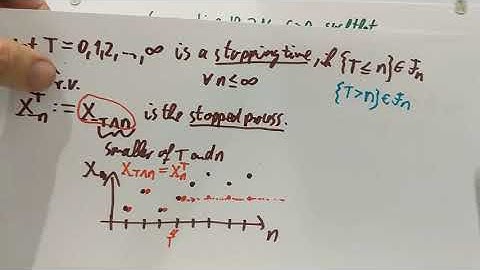 T = 0,1,2, ..., ∞ is a stopping time, if {T ≤ n} ∈ F_n
∀ n ≤ ∞
{T > n} ∈ F_n
r.v.
X_n^T := X_{T∧n} is the stopped process.
smaller of T and n
X_n X_{T∧n} = X_n^T
T
n